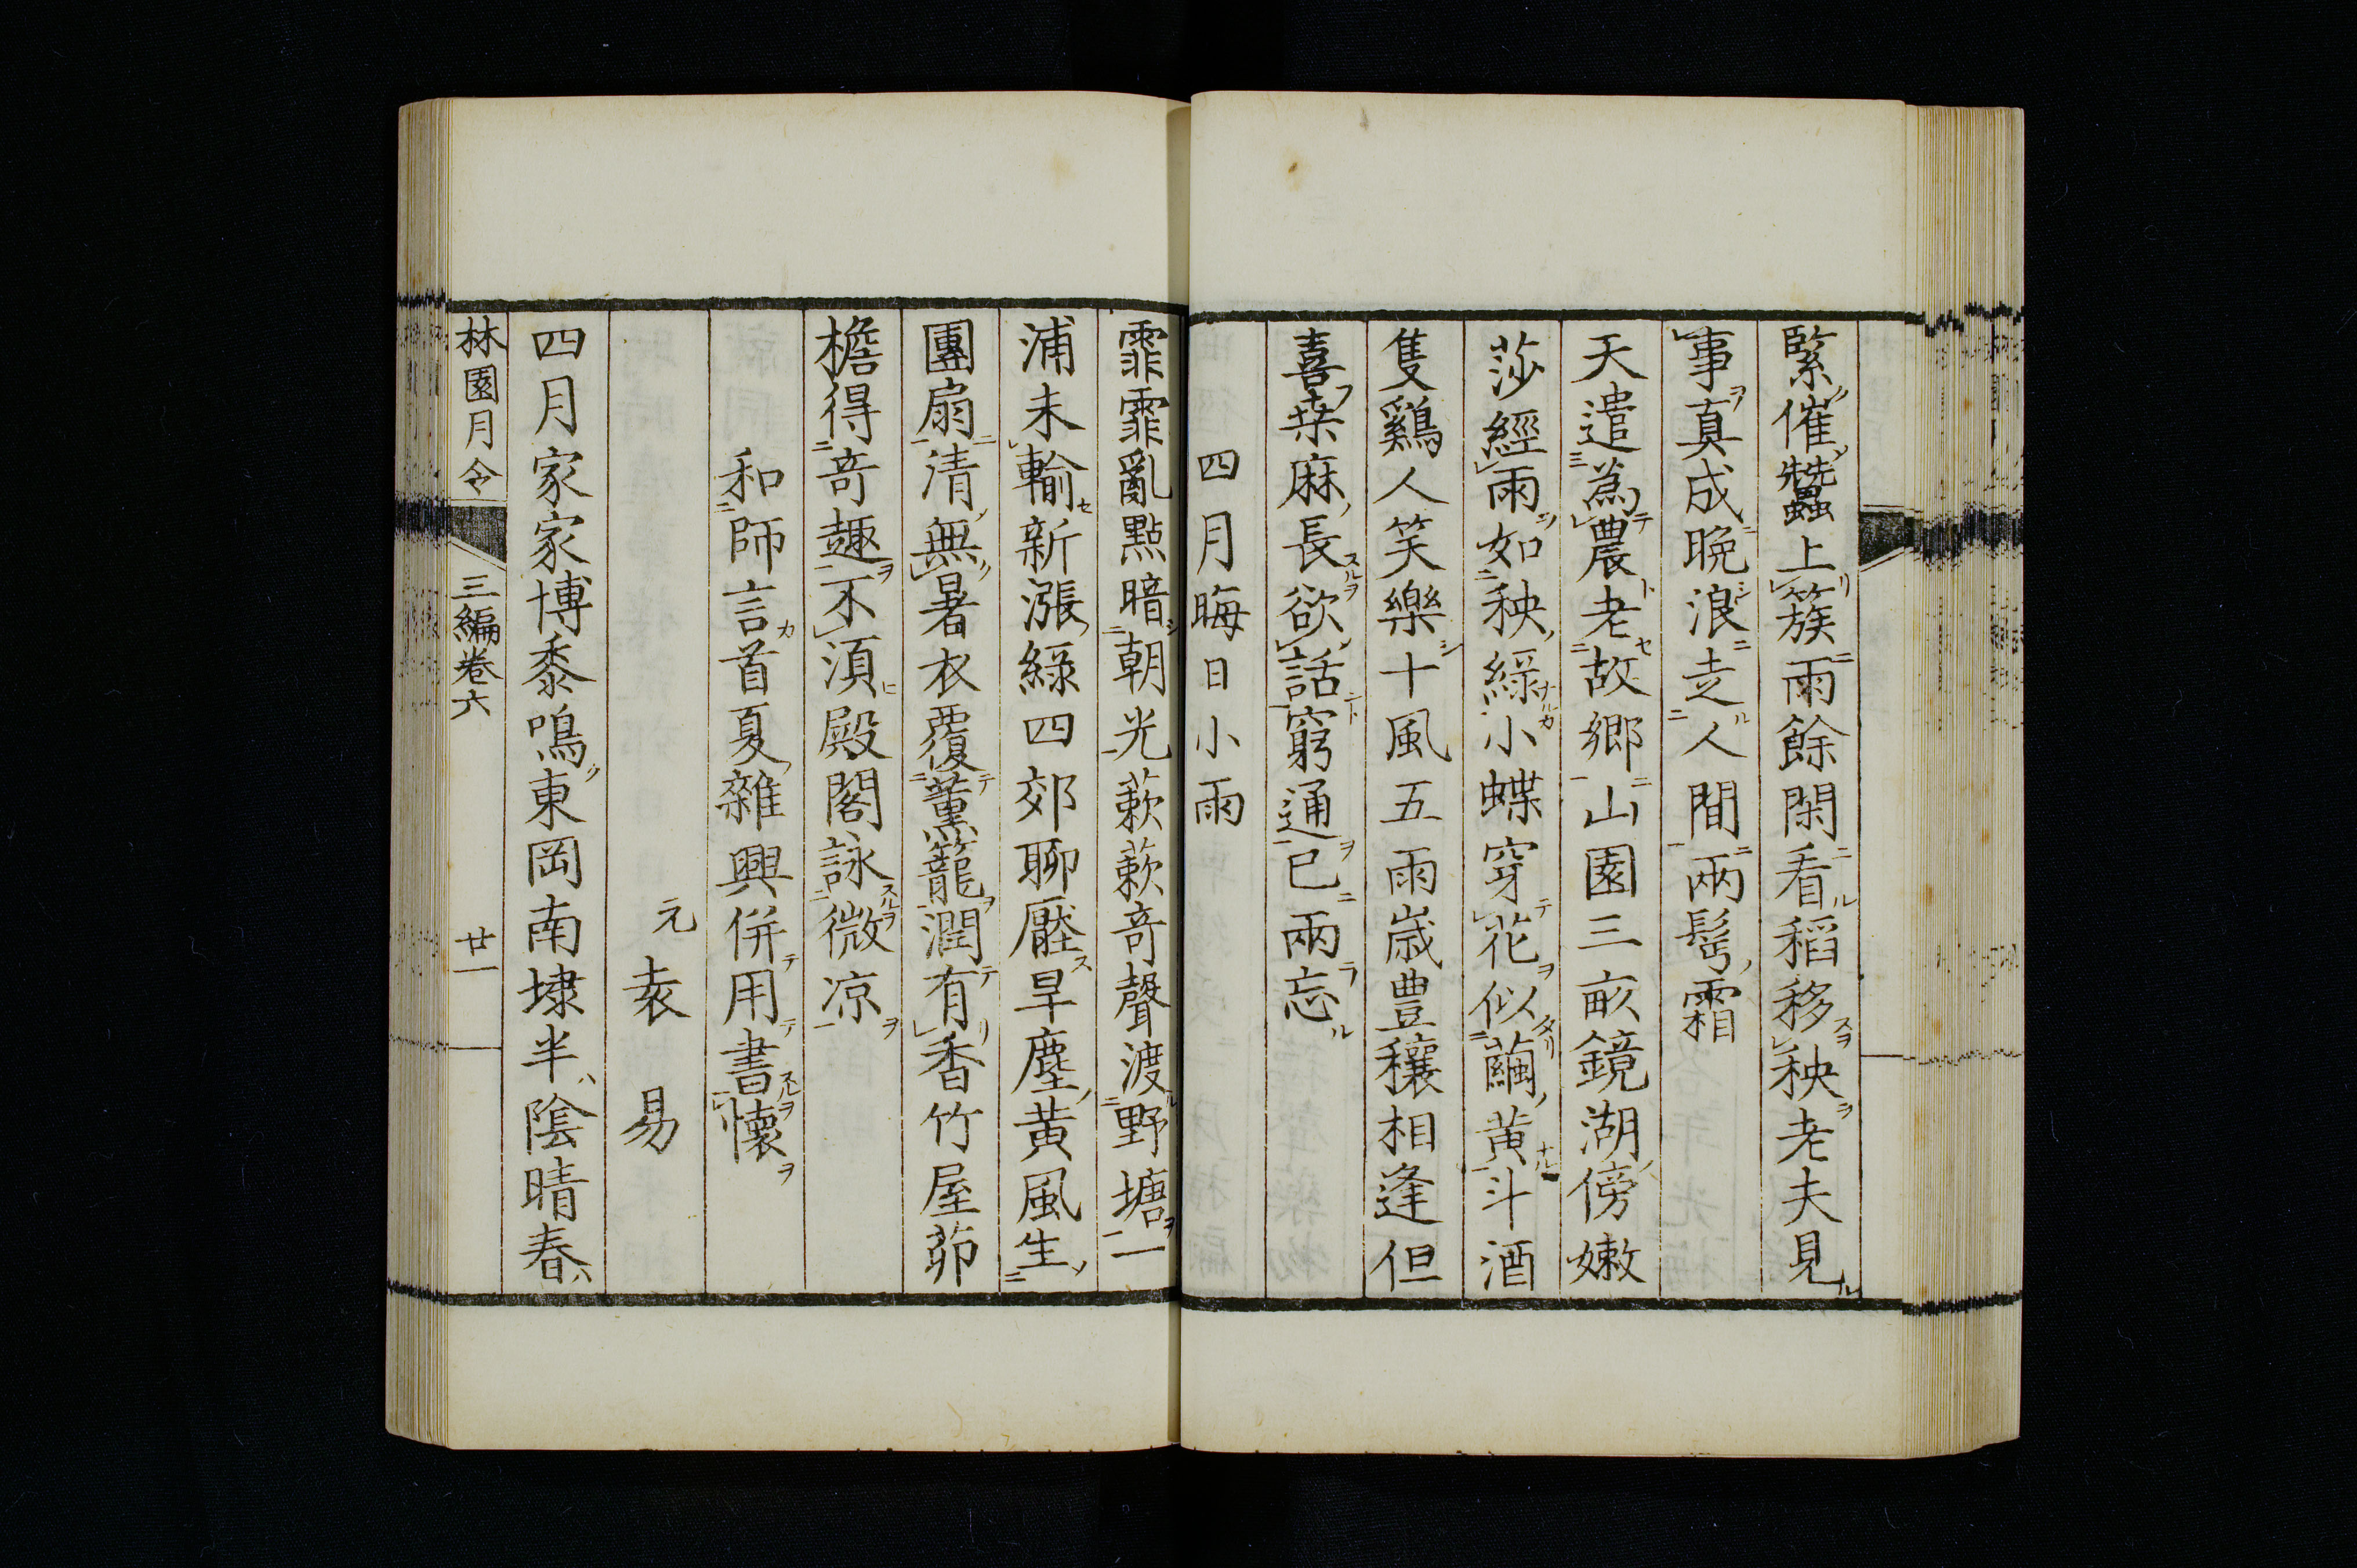 緊催蠶上簇雨餘閑看稻移秧老夫見
事真成晩浪走人間兩髩霜
天遣為農老故郷山園三畝鏡湖傍嫩
莎經雨如秧緑小蝶穿花似繭黄斗酒
隻鷄人笑樂十風五雨歳豊穰相逢但
喜桒麻長欲話窮通已兩忘
四月晦日小雨
霏霏亂點暗朝光蔌蔌竒聲渡野塘一
浦未輸新漲緑四郊聊壓旱塵黄風生
團扇清無暑衣覆薫籠潤有香竹屋茆
檐得竒趣不須殿閣詠微凉
和師言首夏雜興併用書懷
元袁易
四月家家博黍鳴東岡南埭半陰晴春
林園月令
三編卷六
廿一